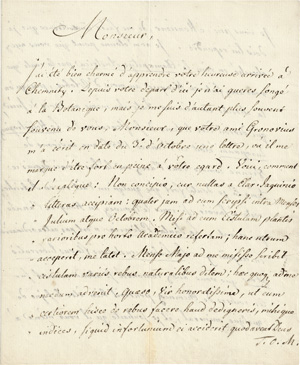 Monsieur,
J'ai été bien charmé d'apprendre vôtre heureuse arrivée à
Chemnitz. Depuis vôtre depart d'ici je n'ai gueres songé
à la Botanique, mais je me suis d'autant plus souvent
souvenu de vous, Monsieur, que vôtre ami Gronovius
m'a écrit en date du 3. d'Octobre une lettre, où il me
marque d'être fort en peine à vôtre egard. Voici, comment
il : Non concipio, cur nullas a Clar. Jaquinio
litteras accipiam: quater jam ad eum scripsi inter
Julium atque Octobrem. Misi ad eum cistulam plantis
rarioribus pro horto Academico refertam; hanc utrum
acceperit, me latet. Mense Majo ad me misisse scribit
cistulam variis rebus naturalibus ditem; haec quoque ad me
nondum advenit. Quaeso, Vir honoratissime, ut eum
certiorem hisce de rebus facere haud dedigneris, mihique
indices, si quid infortunii ei acciderit quod avertat Deus
T. O. M.